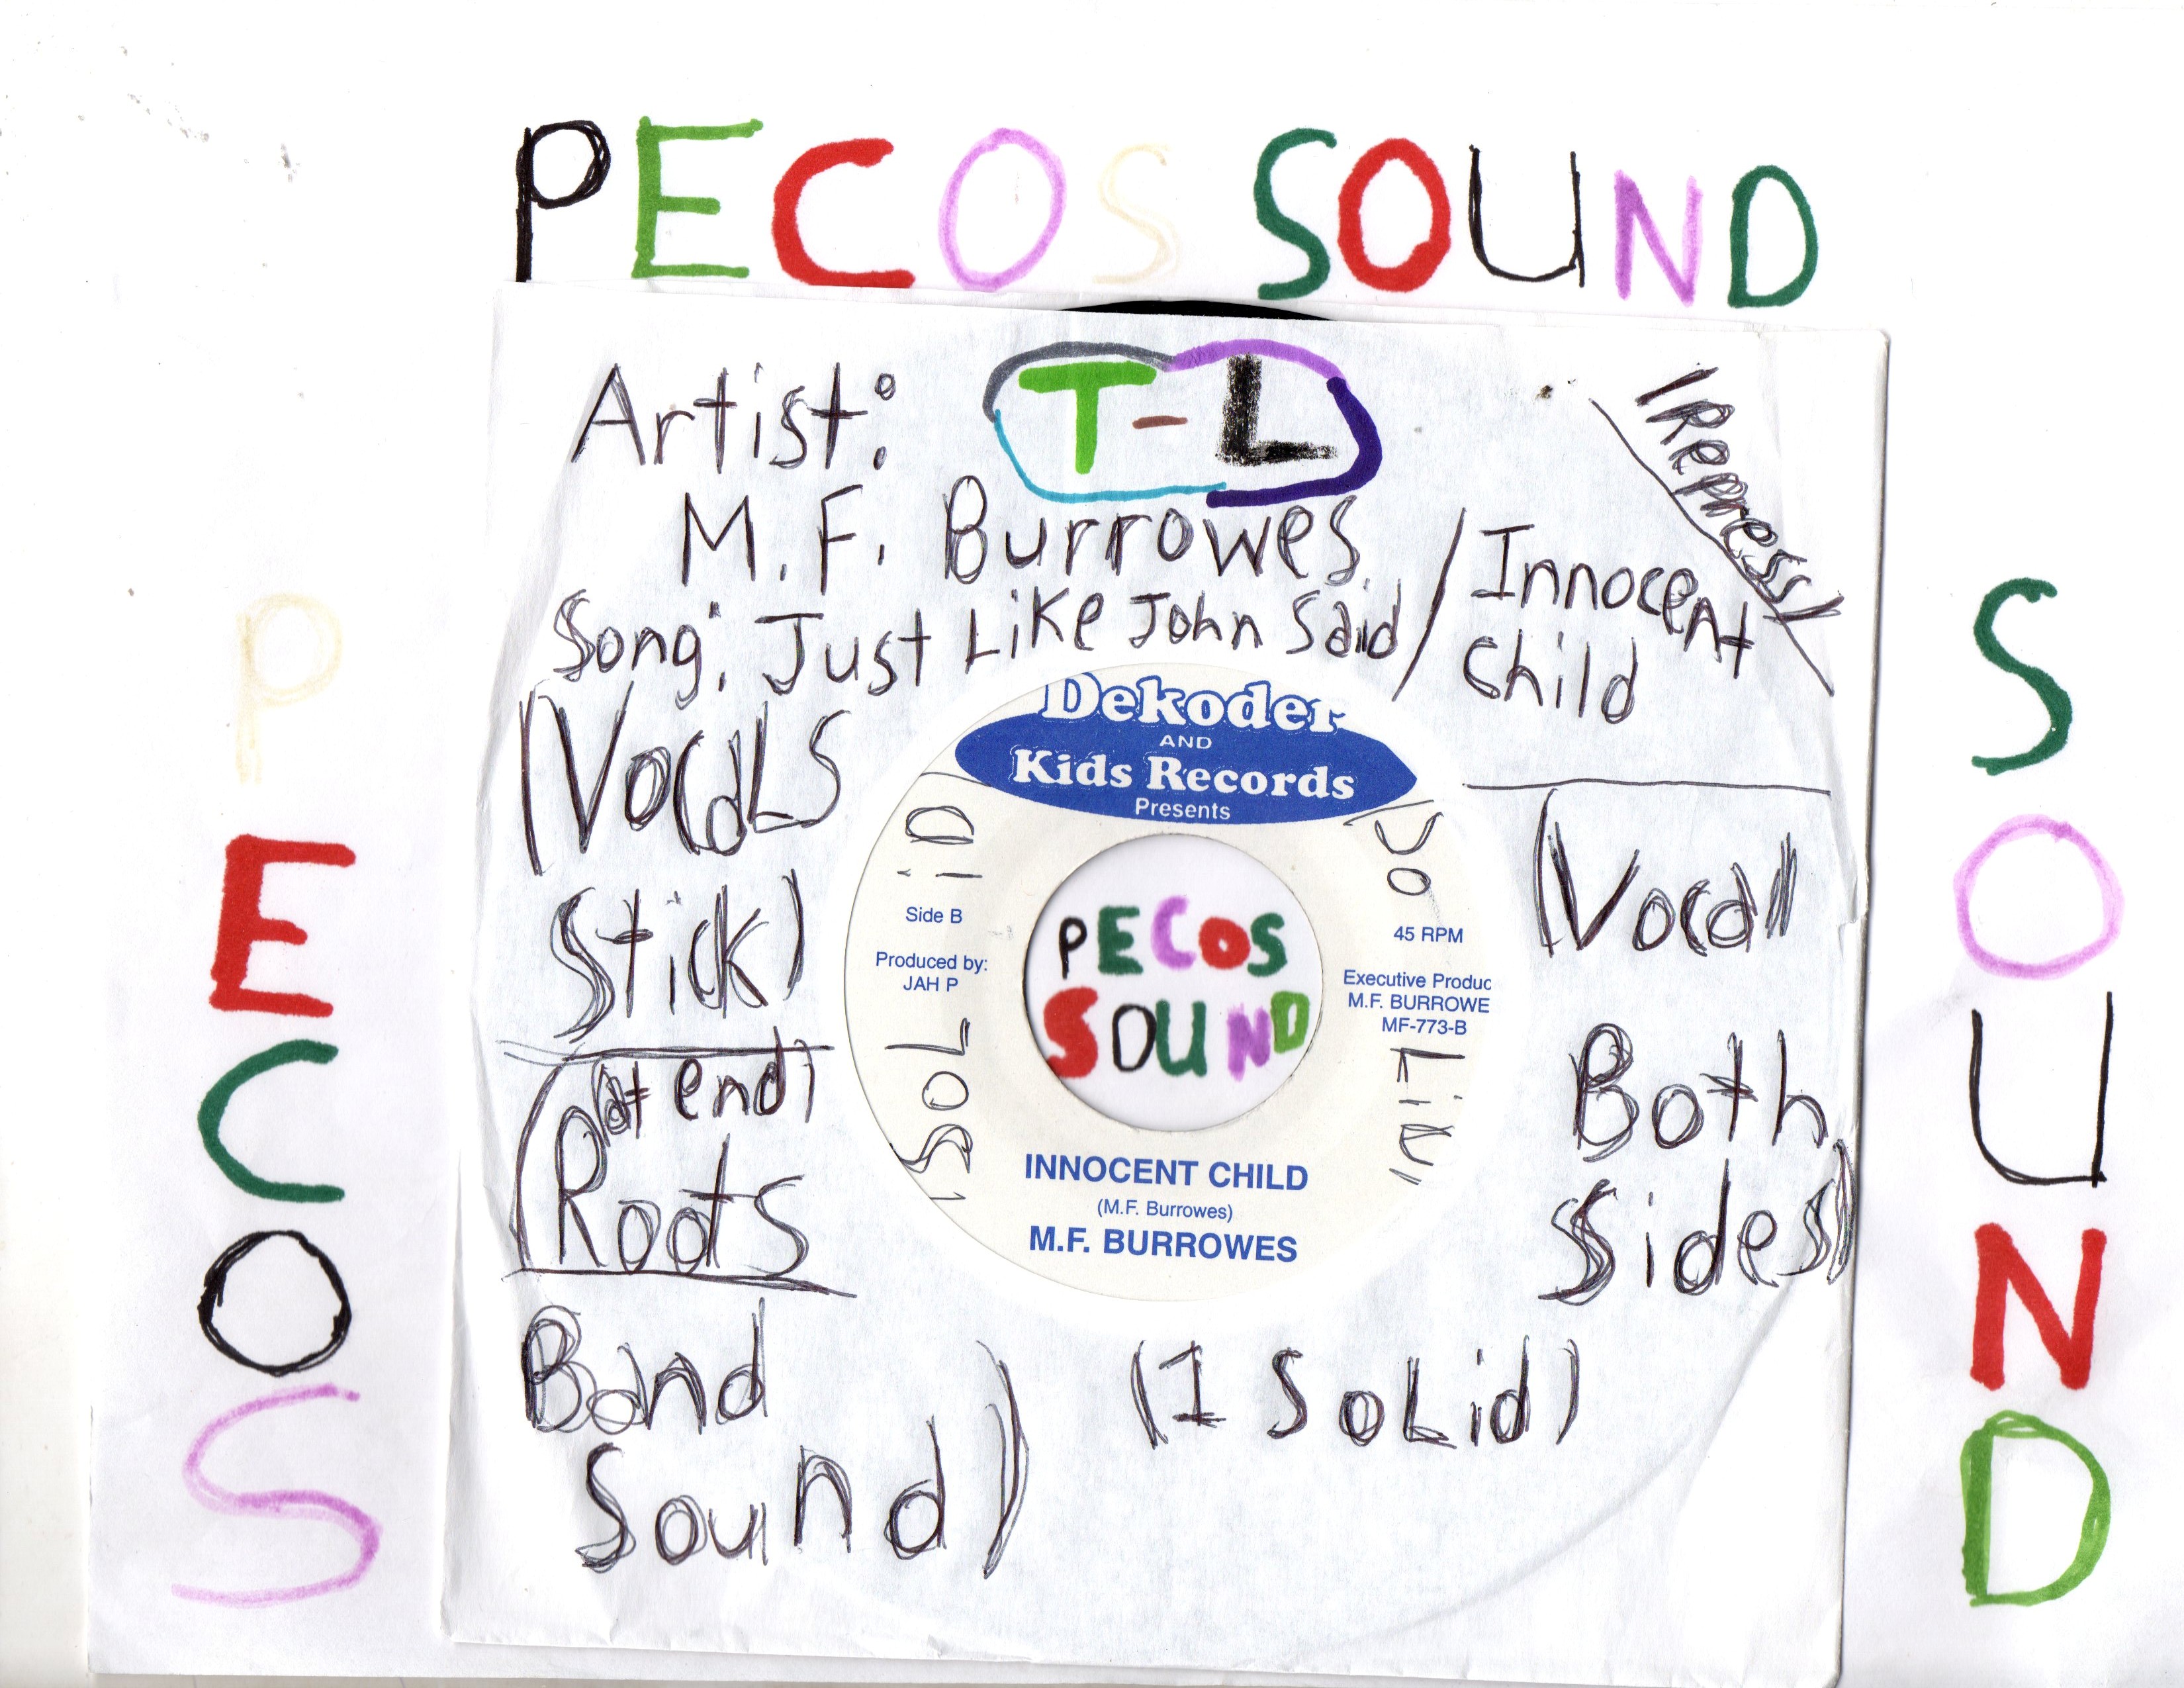 PECOS SOUND
T-L
Artist:
M.F. Burrowes
Song: Just Like John Said / Innocent
Child
(Repress)
(Vocals
Stick)
(at end)
(Roots
Band
Sound)
(Vocal
Both
Sides)
(1 SoLid)
Dekoder
AND
Kids Records
Presents
Side B
Produced by:
JAH P
45 RPM
Executive Produc
M.F. BURROWE
MF-773-B
PECOS
SOUND
INNOCENT CHILD
(M.F. Burrowes)
M.F. BURROWES
PECOS
SOUND